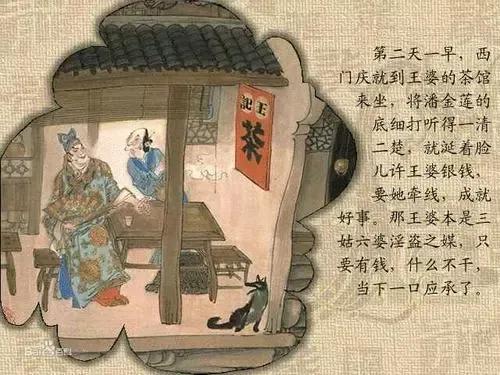 王記
茶
第二天一早，西
门庆就到王婆的茶馆
来坐，将潘金莲的
底细打听得一清
二楚，就涎着脸
儿许王婆银钱，
要她牵线，成就
好事。那王婆本是三
姑六婆淫盗之媒，只
要有钱，什么不干，
当下一口应承了。
Bai 百科